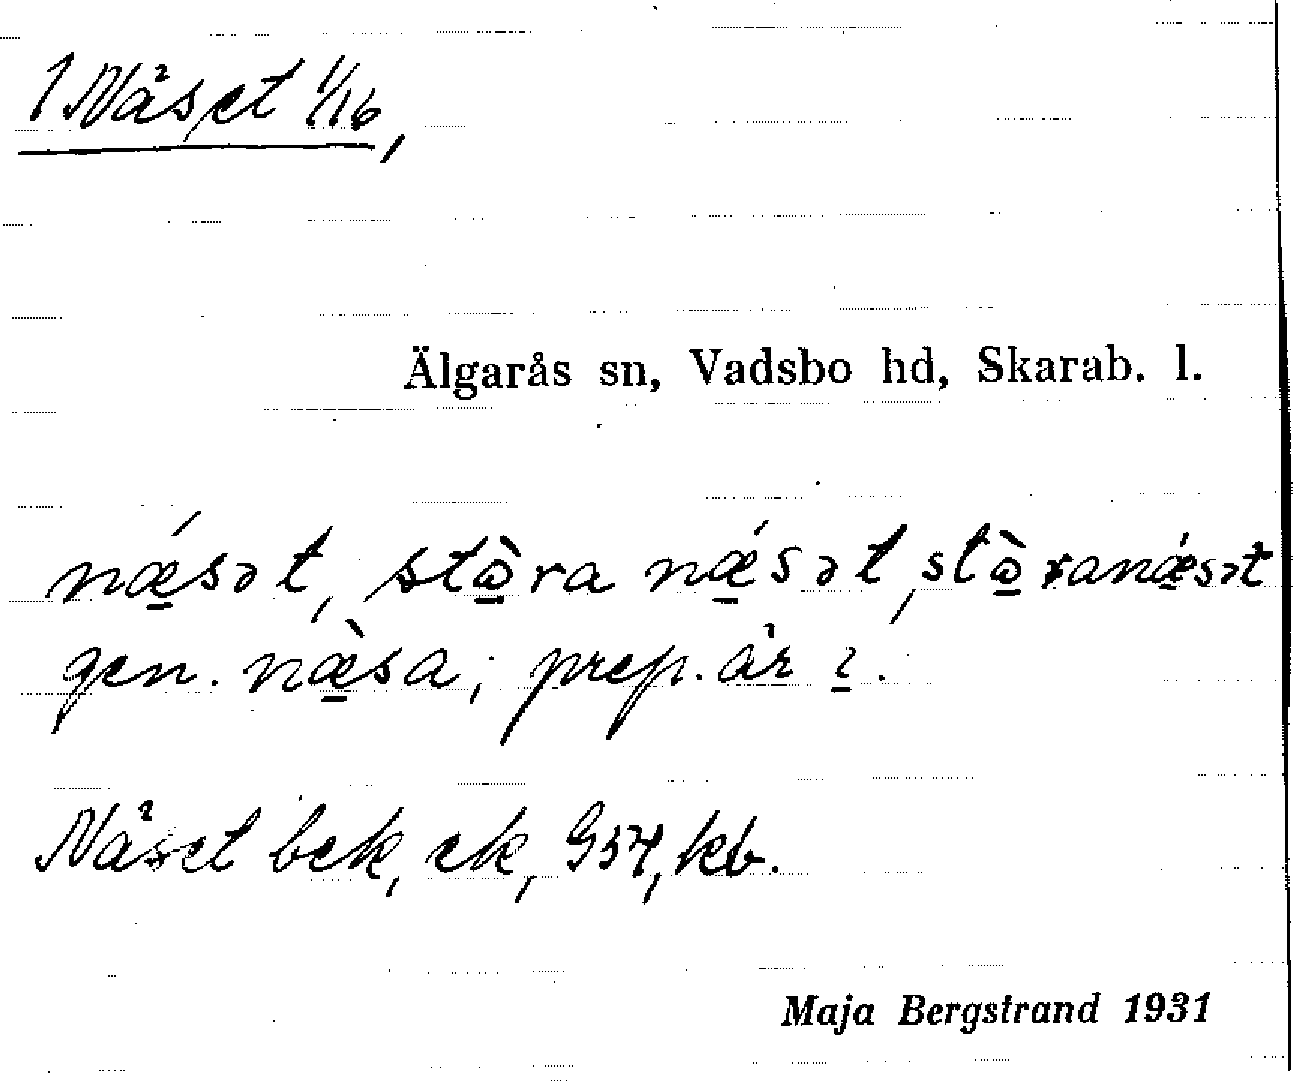 1 Näset 1/16,
Älgarås sn, Vadsbo hd, Skarab. l.
nǽ̱sət, stò̱ra nǽ̱sət, stò̱ranǽ̱sət
gen. næ̱̀sa; prep. är i̱.
Näset bek, ek, G54, kb.
Maja Bergstrand 1931